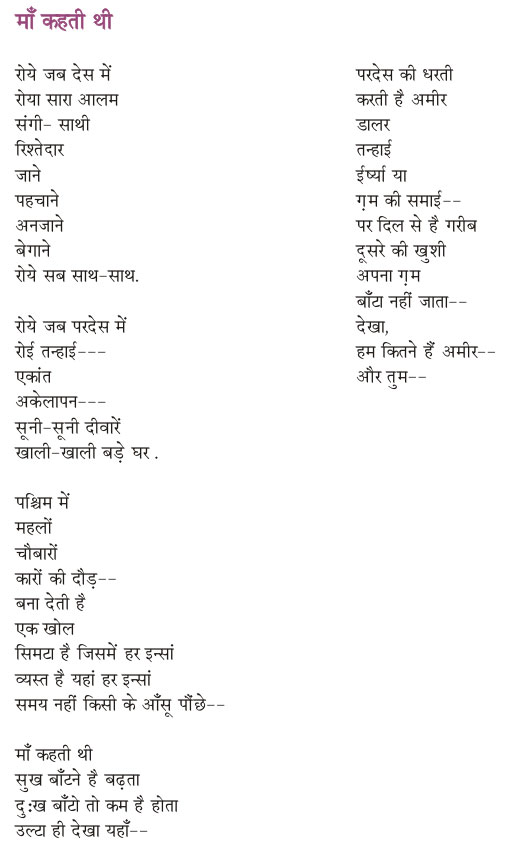 माँ कहती थी
रोये जब देस में
रोया सारा आलम
संगी- साथी
रिश्तेदार
जाने
पहचाने
अनजाने
बेगाने
रोये सब साथ-साथ.
रोये जब परदेस में
रोई तन्हाई---
एकांत
अकेलापन---
सूनी-सूनी दीवारें
खाली-खाली बड़े घर .
पश्चिम में
महलों
चौबारों
कारों की दौड़--
बना देती है
एक खोल
सिमटा है जिसमें हर इन्सां
व्यस्त है यहां हर इन्सां
समय नहीं किसी के आँसू पौंछे--
माँ कहती थी
सुख बाँटने है बढ़ता
दु:ख बाँटो तो कम है होता
उल्टा ही देखा यहाँ--
परदेस की धरती
करती है अमीर
डालर
तन्हाई
ईर्ष्या या
ग़म की समाई--
पर दिल से है गरीब
दूसरे की खुशी
अपना ग़म
बाँटा नहीं जाता--
देखा,
हम कितने हैं अमीर--
और तुम--